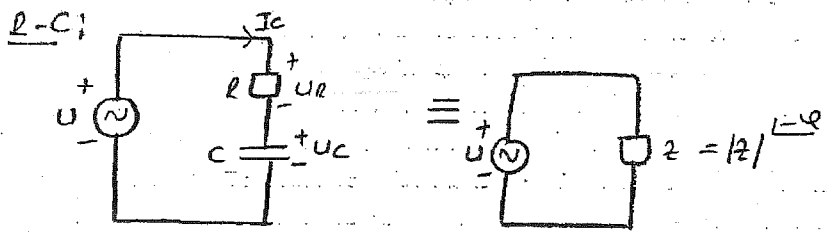 R-C:
Ic
+
R
UR
-
+
U
-
C
+
UC
-
≡
+
U
-
Z = |Z| ∠-φ